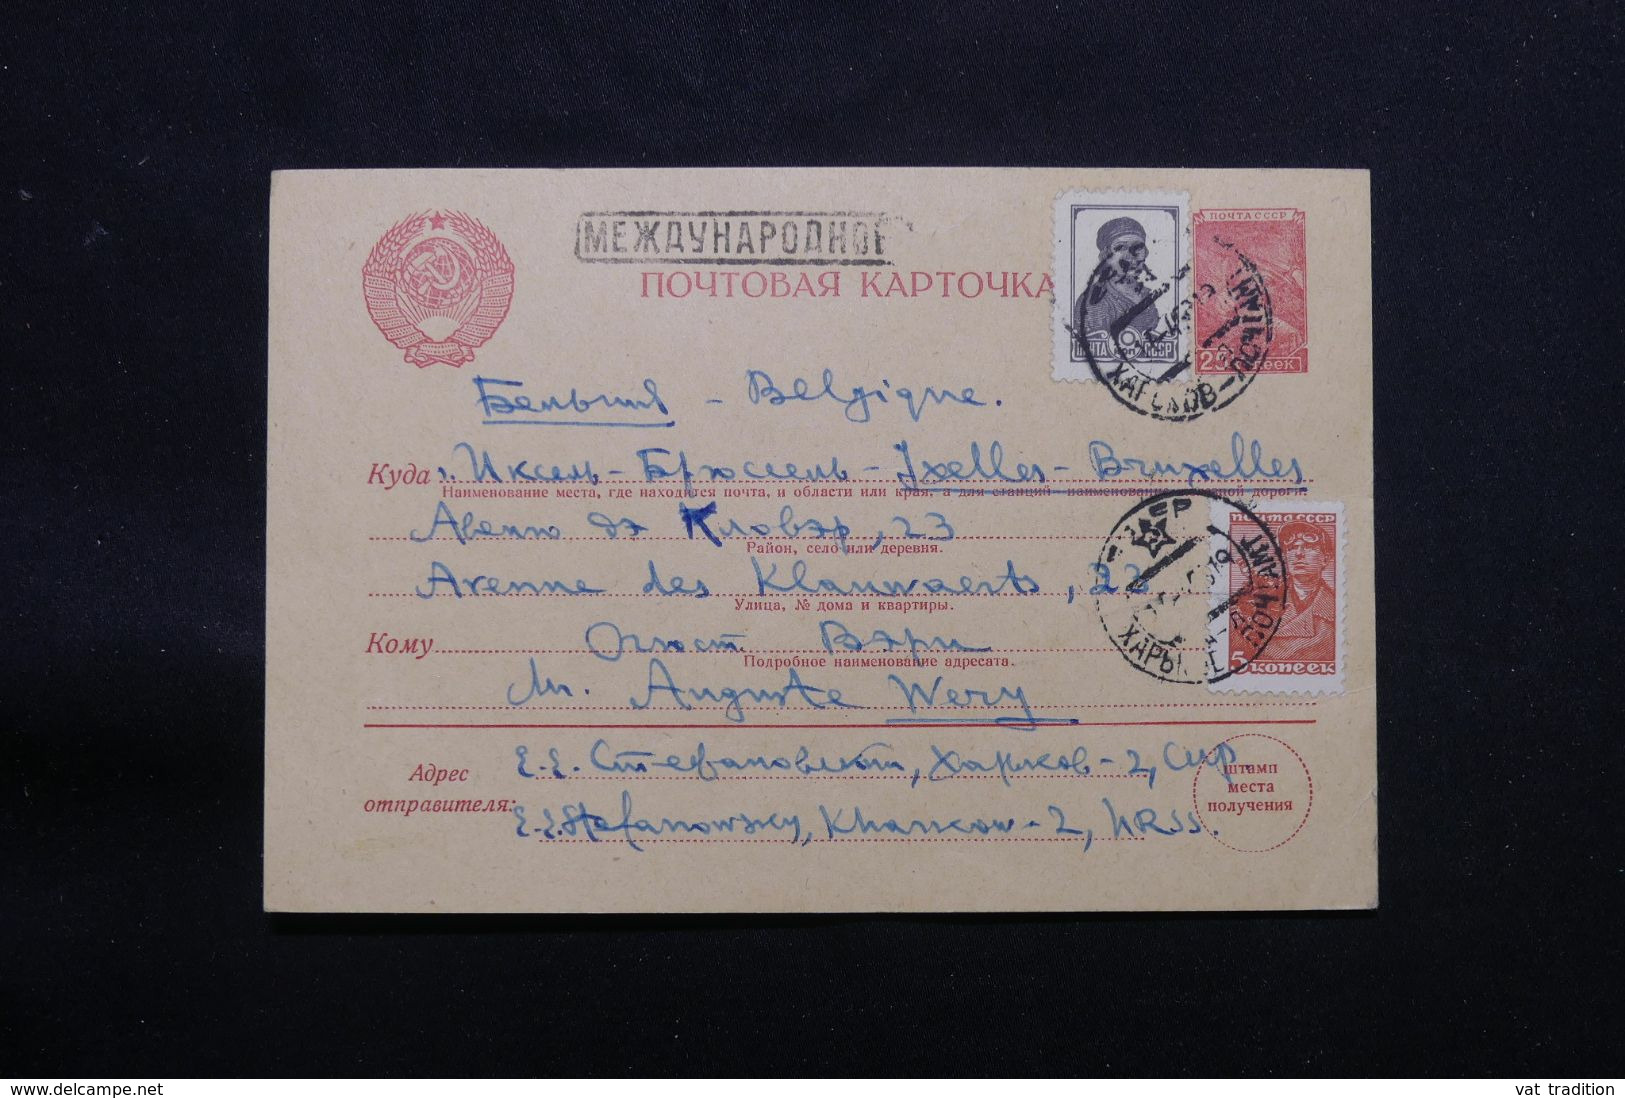 МЕЖДУНАРОДНОЕ
ПОЧТОВАЯ КАРТОЧКА
ПОЧТА СССР
ПОЧТА СССР
25 копеек
ХАРЬКОВ ПОЧТАМТ
Бельгия - Belgique.
Куда г. Иксель-Брюссель-Ixelles-Bruxelles
Наименование места, где находится почта, и области или края, а для станций наименование дороги.
Авеню дэ Кловэр, 23
Район, село или деревня.
Avenue des Klauwaerts, 23
Улица, № дома и квартиры.
Кому Огюст Вэри
Подробное наименование адресата.
Mr. Auguste Wery
ПОЧТА СССР
5 копеек
ХАРЬКОВ ПОЧТАМТ
Адрес отправителя:
Е.Е. Стефановский, Харков-2,
E.E. Stefanowsky, Kharkow-2, URSS.
штамп
места
получения
www.delcampe.net
vat_tradition